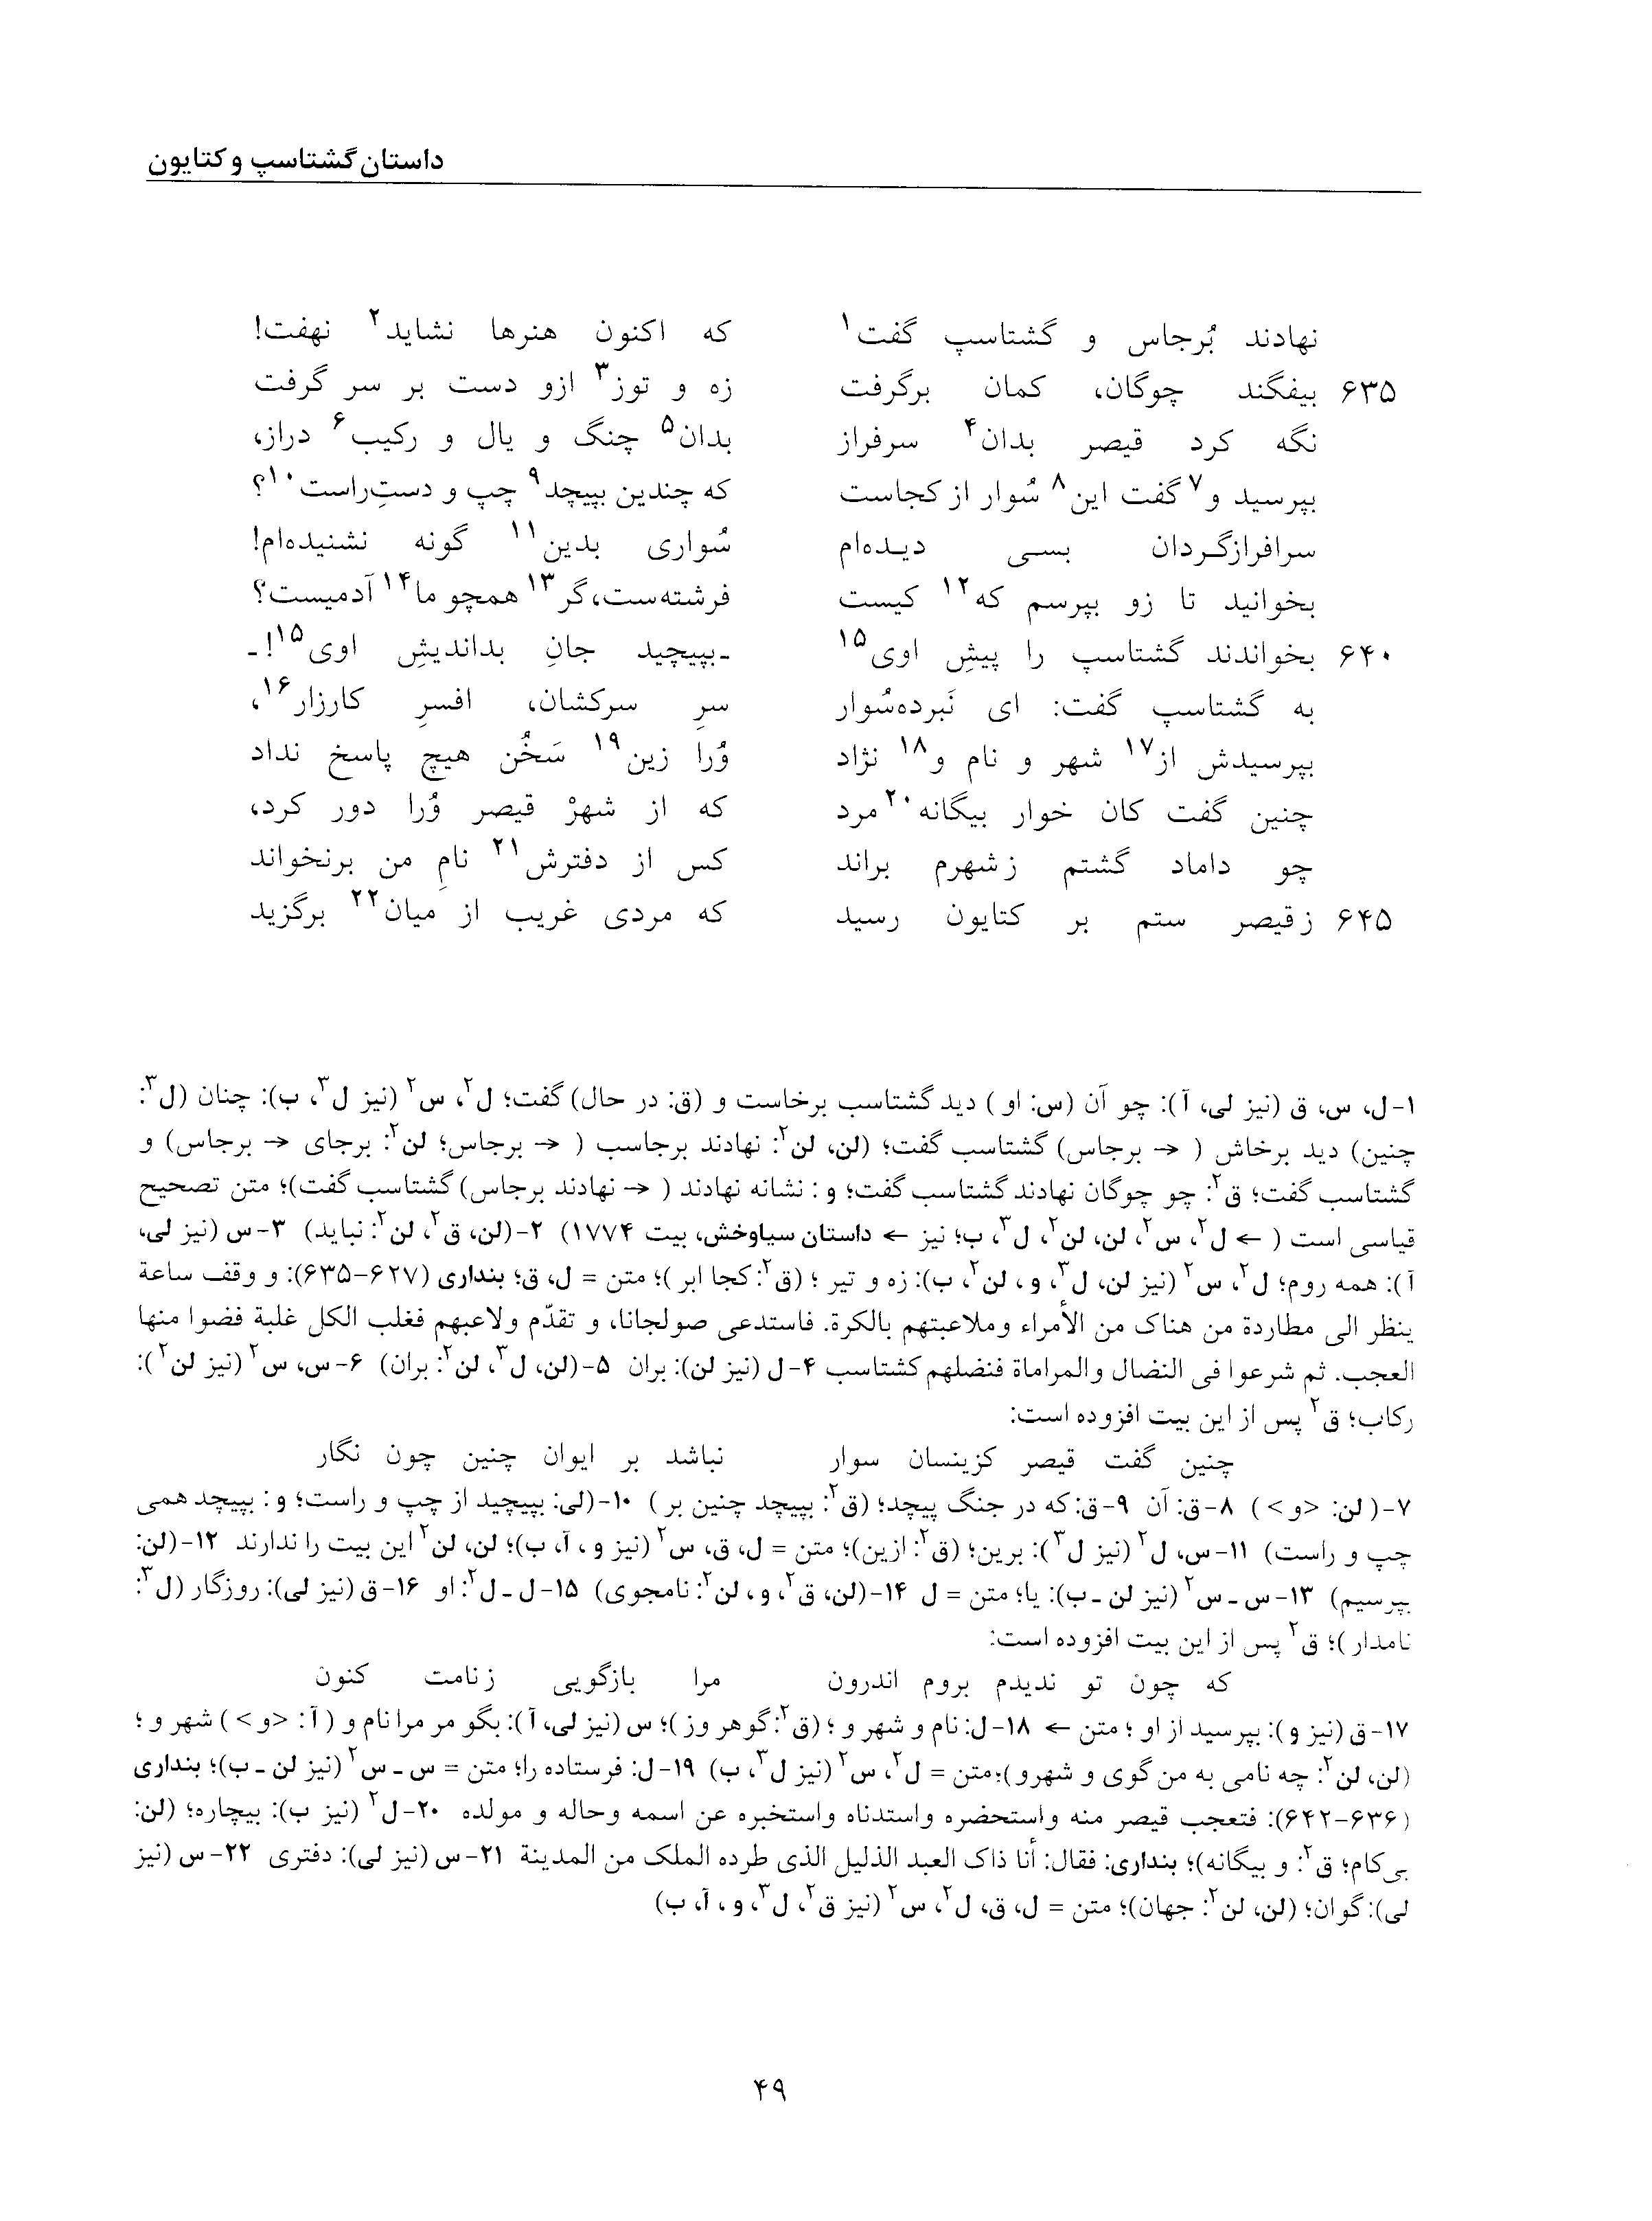 داستان گشتاسپ و کتایون
نهادند بُرجاس و گشتاسپ گفت۱ که اکنون هنرها نشاید۲ نهفت!
۶۳۵ بیفگند چوگان، کمان برگرفت زه و توز۳ ازو دست بر سر گرفت
نگه کرد قیصر بدان۴ سرفراز بدان۵ چنگ و یال و رکیب۶ دراز،
بپرسید و۷ گفت این۸ سُوار از کجاست که چندین بپیچد۹ چپ و دستِ‌راست۱۰؟
سرافرازگردان بسی دیده‌ام سُواری بدین۱۱ گونه نشنیده‌ام!
بخوانید تا زو بپرسم که۱۲ کیست فرشته‌ست، گر۱۳ همچو ما۱۴ آدمیست؟
۶۴۰ بخواندند گشتاسپ را پیشِ اوی۱۵ ـ بپیچید جانِ بداندیشِ اوی۱۵! ـ
به گشتاسپ گفت: ای نَبرده‌سُوار سرِ سرکشان، افسرِ کارزار۱۶،
بپرسیدش از۱۷ شهر و نام و۱۸ نژاد وُرا زین۱۹ سَخُن هیچ پاسخ نداد
چنین گفت کان خوار بیگانه۲۰ مرد که از شهرْ قیصر وُرا دور کرد،
چو داماد گشتم ز شهرم براند کس از دفترش۲۱ نامِ من برنخواند
۶۴۵ ز قیصر ستم بر کتایون رسید که مردی غریب از میان۲۲ برگزید
۱-ل، س، ق (نیز لی، آ): چو آن (س: او) دید گشتاسب برخاست و (ق: در حال) گفت؛ ل۲، س۲ (نیز ل۳، ب): چنان (ل۳:
چنین) دید برخاش ( → برجاس) گشتاسب گفت؛ (لن، لن۲: نهادند برجاسب ( → برجاس؛ لن۲: برجای → برجاس) و
گشتاسب گفت؛ ق۲: چو چوگان نهادند گشتاسب گفت؛ و: نشانه نهادند ( → نهادند برجاس) گشتاسب گفت)؛ متن تصحیح
قیاسی است ( ← ل۲، س۲، لن، لن۲، ل۳، ب؛ نیز ← داستان سیاوخش، بیت ۱۷۷۴) ۲-(لن، ق۲، لن۲: نباید) ۳-س (نیز لی،
آ): همه روم؛ ل۲، س۲ (نیز لن، ل۳، و، لن۲، ب): زه و تیر؛ (ق۲: کجا ابر)؛ متن = ل، ق؛ بنداری (۶۲۷-۶۳۵): و وقف ساعة
ینظر الی مطاردة من هناک من الأمراء وملاعبتهم بالکرة. فاستدعی صولجانا، و تقدّم ولاعبهم فغلب الکل غلبة فضوا منها
العجب. ثم شرعوا فی النضال والمراماة فنضلهم کشتاسب ۴-ل (نیز لن): بران ۵-(لن، ل۳، لن۲: بران) ۶-س، س۲ (نیز لن۲):
رکاب؛ ق۲ پس از این بیت افزوده است:
چنین گفت قیصر کزینسان سوار نباشد بر ایوان چنین چون نگار
۷-( لن: <و> ) ۸-ق: آن ۹-ق: که در جنگ پیچد؛ (ق۲: بپیچد چنین بر ) ۱۰-(لی: بپیچید از چپ و راست؛ و: بپیچد همی
چپ و راست) ۱۱-س، ل۲ (نیز ل۳): برین؛ (ق۲: ازین)؛ متن = ل، ق، س۲ (نیز و، آ، ب)؛ لن، لن۲ این بیت را ندارند ۱۲-(لن:
بپرسیم) ۱۳-س ـ س۲ (نیز لن ـ ب): یا؛ متن = ل ۱۴-(لن، ق۲، و، لن۲: نامجوی) ۱۵-ل ـ ل۲: او ۱۶-ق (نیز لی): روزگار (ل۳:
نامدار)؛ ق۲ پس از این بیت افزوده است:
که چون تو ندیدم بروم اندرون مرا بازگویی ز نامت کنون
۱۷-ق (نیز و): بپرسید از او؛ متن ← ۱۸-ل: نام و شهر و؛ (ق۲: گوهر وز)؛ س (نیز لی، آ): بگو مر مرا نام و (آ: <و>) شهر و؛
(لن، لن۲: چه نامی به من گوی و شهرو)؛ متن = ل۲، س۲ (نیز ل۳، ب) ۱۹-ل: فرستاده را؛ متن = س ـ س۲ (نیز لن ـ ب)؛ بنداری
(۶۳۶-۶۴۲): فتعجب قیصر منه واستحضره واستدناه واستخبره عن اسمه وحاله و مولده ۲۰-ل۲ (نیز ب): بیچاره؛ (لن:
بی‌کام؛ ق۲: و بیگانه)؛ بنداری: فقال: أنا ذاک العبد الذلیل الذی طرده الملک من المدینة ۲۱-س (نیز لی): دفتری ۲۲-س (نیز
لی): گوان؛ (لن، لن۲: جهان)؛ متن = ل، ق، ل۲، س۲ (نیز ق۲، ل۳، و، آ، ب)
۴۹